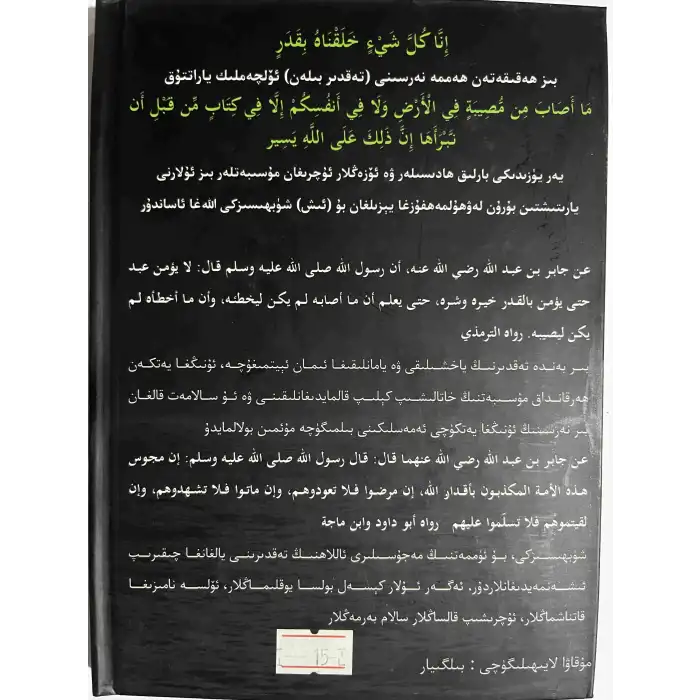 إِنَّا كُلَّ شَيْءٍ خَلَقْنَاهُ بِقَدَرٍ
بىز ھەقىقەتەن ھەممە نەرسىنى (تەقدىر بىلەن) ئۆلچەملىك ياراتتۇق
مَا أَصَابَ مِن مُّصِيبَةٍ فِي الْأَرْضِ وَلَا فِي أَنفُسِكُمْ إِلَّا فِي كِتَابٍ مِّن قَبْلِ أَن
نَّبْرَأَهَا إِنَّ ذَلِكَ عَلَى اللَّهِ يَسِير
يەر يۈزىدىكى بارلىق ھادىسىلەر ۋە ئۆزەڭلار ئۇچرىغان مۇسىبەتلەر بىز ئۇلارنى
يارىتىشتىن بۇرۇن لەۋھۇلمەھفۇزغا يېزىلغان بۇ (ئىش) شۈبھىسىزكى اللەغا ئاساندۇر
عن جابر بن عبد الله رضي الله عنه، أن رسول الله صلى الله عليه وسلم قال: لا يؤمن عبد
حتى يؤمن بالقدر خيره وشره، حتى يعلم أن ما أصابه لم يكن ليخطئه، وأن ما أخطأه لم
يكن ليصيبه. رواه الترمذي
بىر بەندە تەقدىرنىڭ ياخشىلىقى ۋە يامانلىقىغا ئىمان ئېيتمىغۇچە، ئۇنىڭغا يەتكەن
ھەرقانداق مۇسىبەتنىڭ خاتالىشىپ كېلىپ قالمايدىغانلىقىنى ۋە ئۇ سالامەت قالغان
بىر نەرسىنىڭ ئۇنىڭغا يەتكۈچى ئەمەسلىكىنى بىلمىگۈچە مۇئمىن بولالمايدۇ
عن جابر بن عبد الله رضي الله عنهما قال: قال رسول الله صلى الله عليه وسلم: إن مجوس
هذه الأمة المكذبون بأقدار الله، إن مرضوا فلا تعودوهم، وإن ماتوا فلا تشهدوهم، وإن
لقيتموهم فلا تسلّموا عليهم رواه أبو داود وابن ماجة
شۈبھىسىزكى، بۇ ئۈممەتنىڭ مەجۇسىلىرى ئاللاھنىڭ تەقدىرىنى يالغانغا چىقىرىپ
ئىشەنمەيدىغانلاردۇر. ئەگەر ئۇلار كېسەل بولسا يوقلىماڭلار، ئۆلسە نامىزىغا
قاتناشماڭلار، ئۇچرىشىپ قالساڭلار سالام بەرمەڭلار
15
مۇقاۋا لايىھىلىگۈچى : بىلگىيار